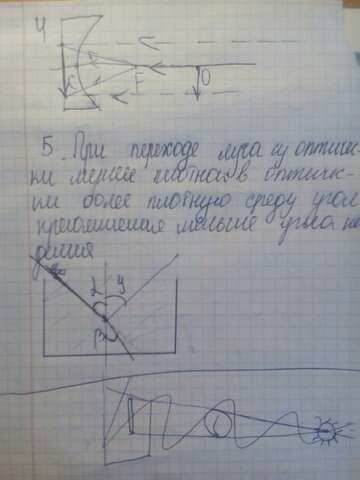 4
F
O
5. При переходе луча из оптичес-
ки менее плотной в оптичес-
ки более плотную среду угол
преломления меньше угла па
дения
α γ
β